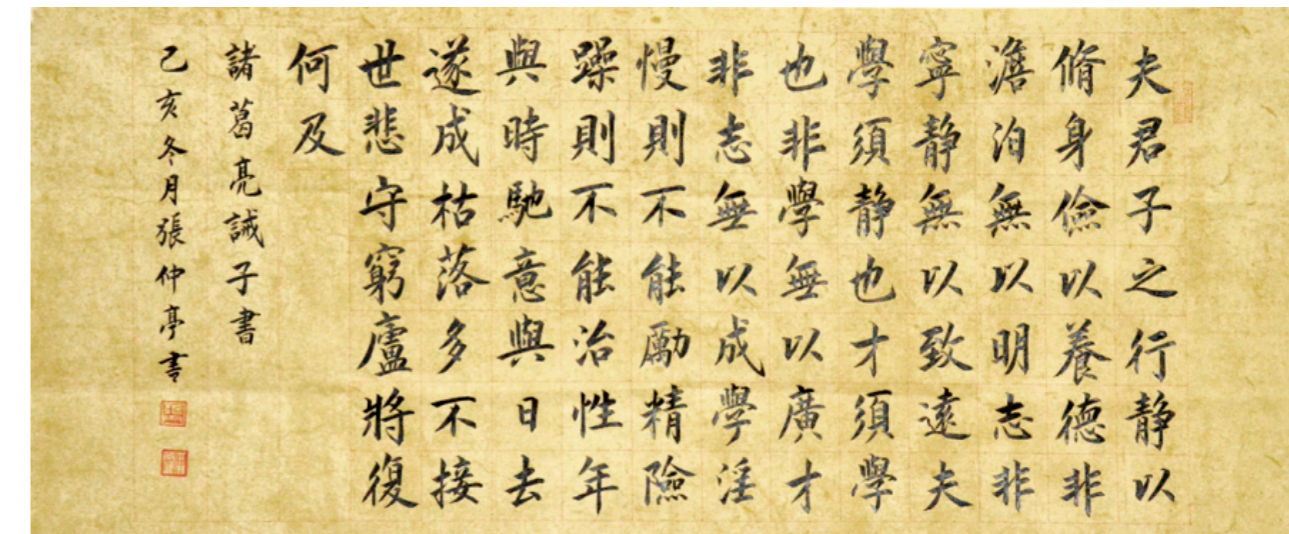 夫君子之行静以
脩身儉以養德非
澹泊無以明志非
寧静無以致遠夫
學須静也才須學
也非學無以廣才
非志無以成學淫
慢則不能勵精險
躁則不能治性年
與時馳意與日去
遂成枯落多不接
世悲守窮廬將復
何及
諸葛亮誡子書
己亥冬月張仲亭書